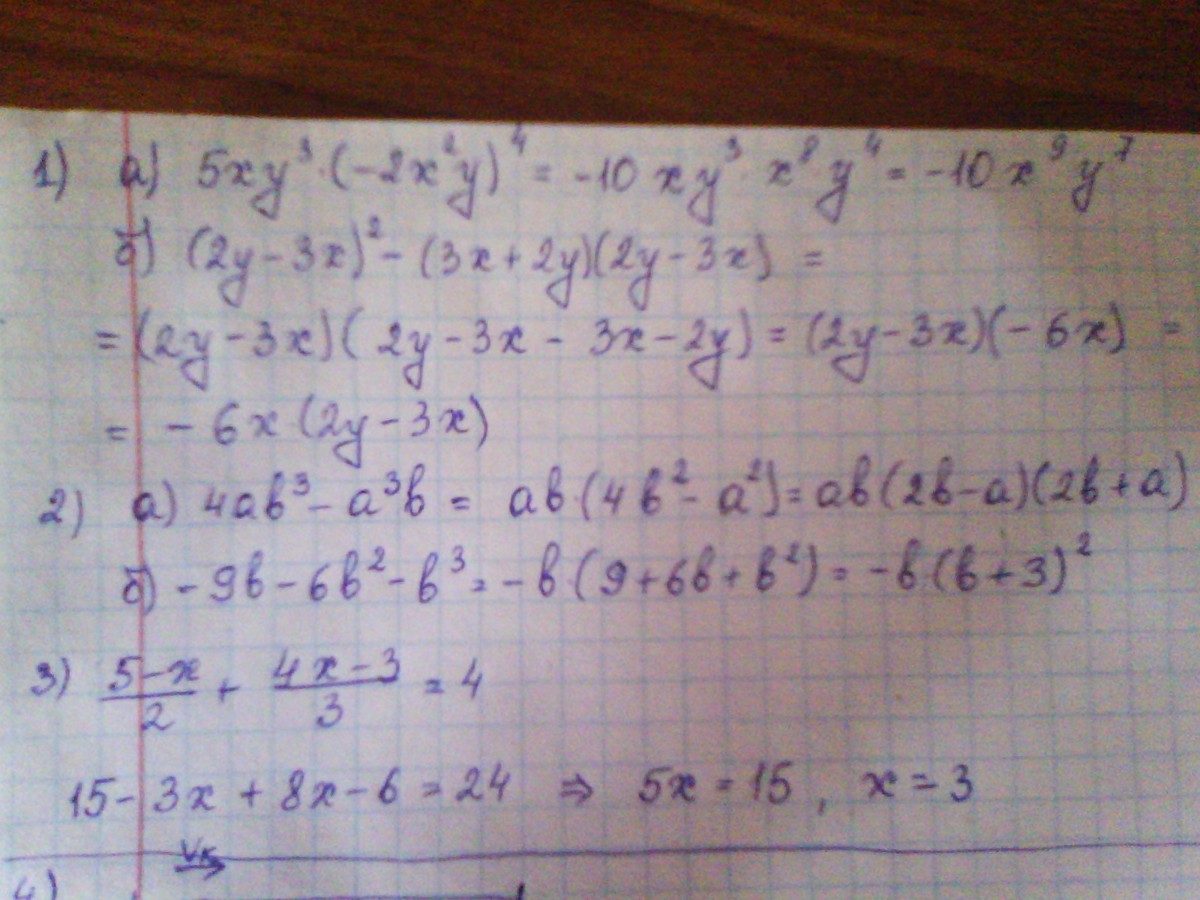 1) а) 5xy³·(-2x²y)⁴ = -10xy³·x⁸y⁴ = -10x⁹y⁷
б) (2y-3x)² - (3x+2y)(2y-3x) =
= (2y-3x)(2y-3x-3x-2y) = (2y-3x)(-6x) =
= -6x(2y-3x)
2) а) 4ab³-a³b = ab·(4b²-a²) = ab(2b-a)(2b+a)
б) -9b-6b²-b³ = -b·(9+6b+b²) = -b·(b+3)²
3) (5-x)/2 + (4x-3)/3 = 4
15-3x+8x-6 = 24 ⇒ 5x = 15, x = 3
Vк
4)